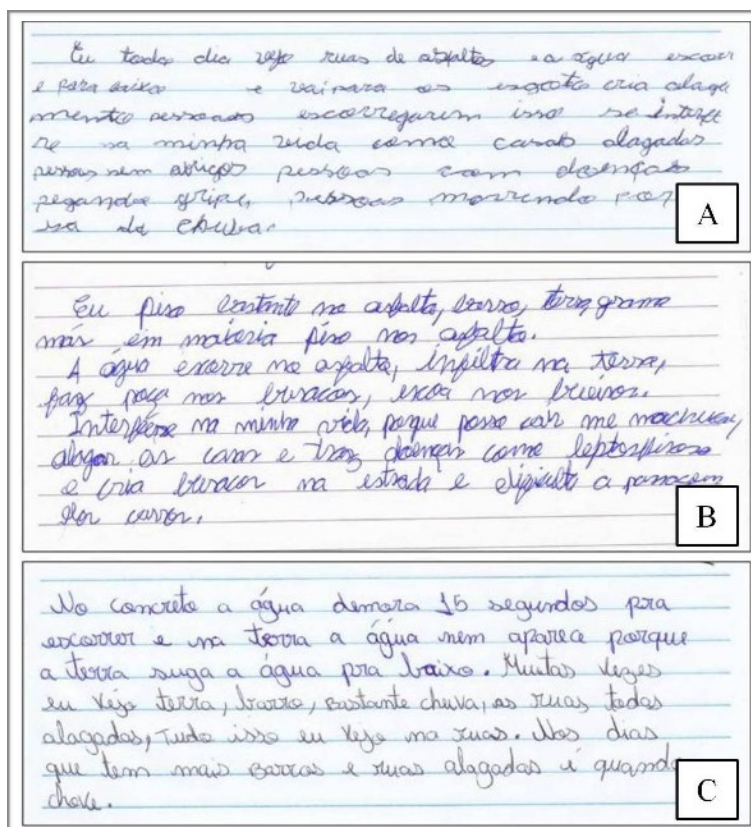 Eu todo dia vejo ruas de asfalto e a água escorr
e para baixo e vai para os esgotos cria alaga
mento pessoas escorregarem isso se interfe
re na minha vida como casas alagadas
pessoas sem abrigos pessoas com doenças
pegando gripe, pessoas morrendo por
da chuva.
A
Eu piso bastante no asfalto, barro, terra, grama
mas em maioria piso nos asfalto.
A água escorre no asfalto, infiltra na terra,
faz poça nos buracos, escoa nos bueiros.
Interfere na minha vida, porque posso cair me machucar,
alagar as casas e traz doenças como leptospirose
e cria buracos na estrada e dificulta a passagem
dos carros.
B
No concreto a água demora 15 segundos pra
escorrer e na terra a água nem aparece porque
a terra suga a água pra baixo. Muitas vezes
eu vejo terra, barro, bastante chuva, as ruas todas
alagadas, tudo isso eu vejo na ruas. Nos dias
que tem mais barros e ruas alagadas é quando
chove.
C